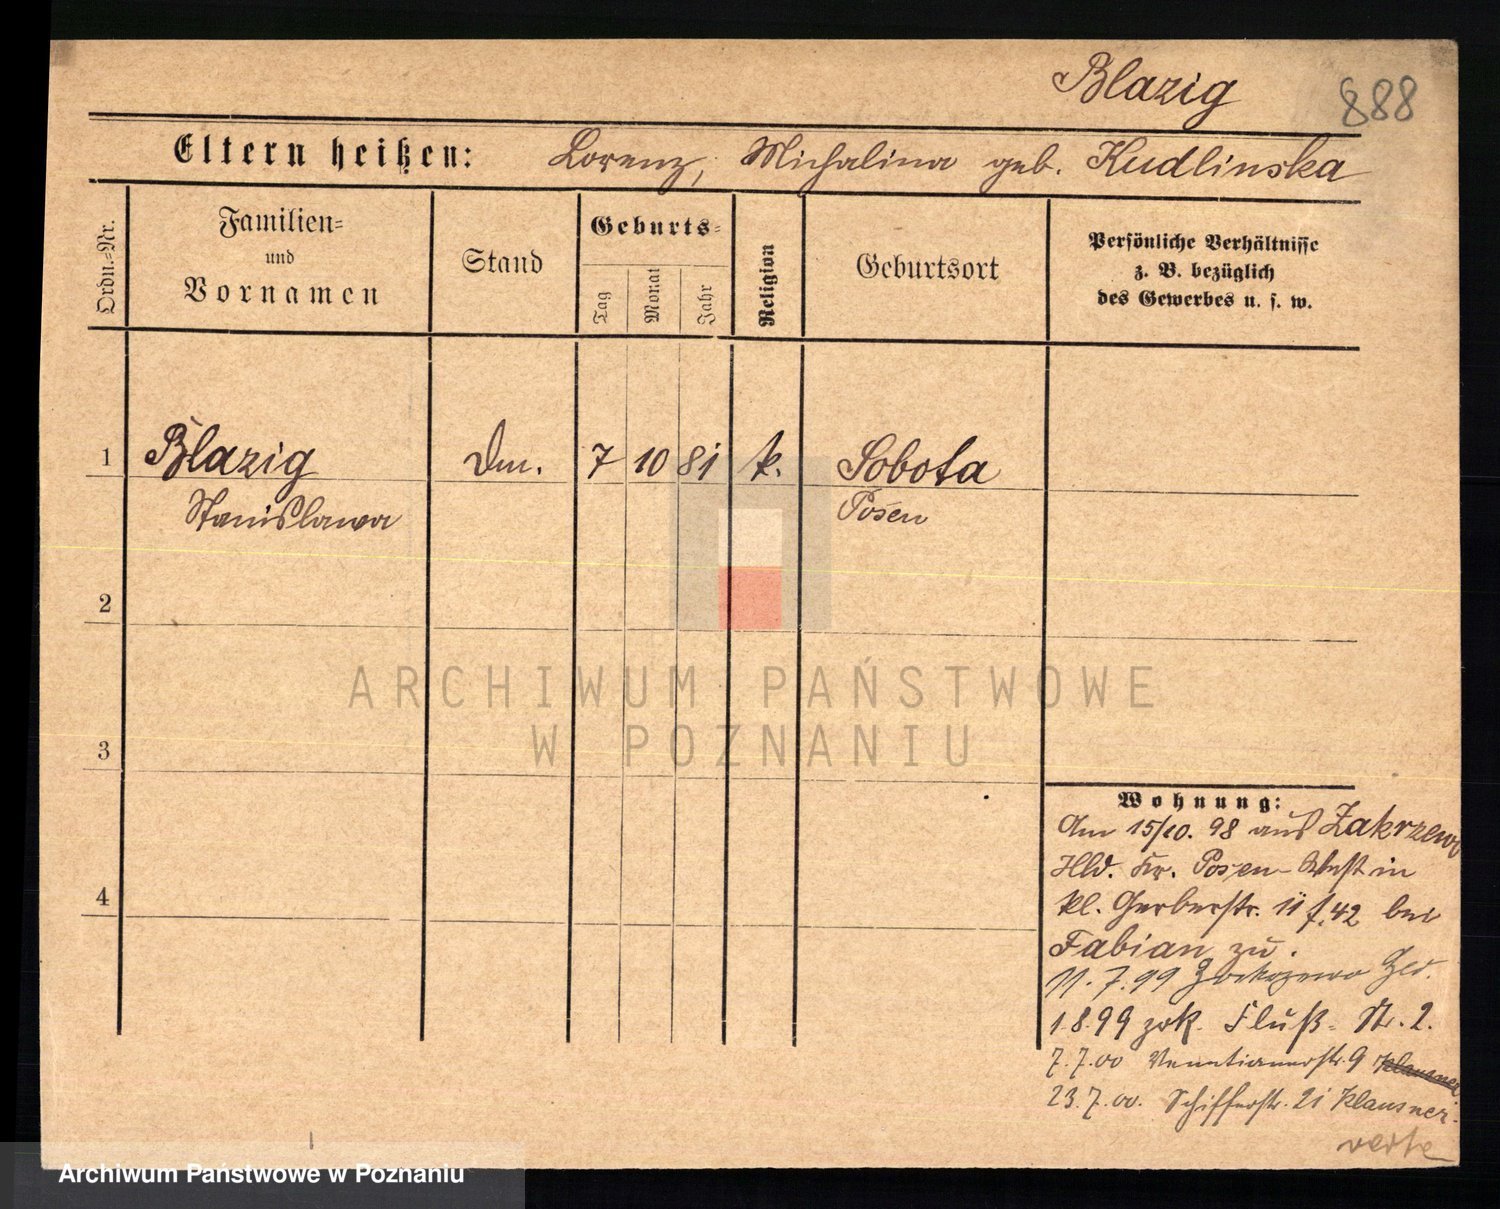 Blazig 888
Eltern heißen: Lorenz, Michalina geb. Kudlinska
Ordn.-Nr.
Familien-
und
Vornamen
Stand
Geburts-
Tag
Monat
Jahr
Religion
Geburtsort
Persönliche Verhältnisse
z. B. bezüglich
des Gewerbes u. s. w.
1 Blazig Dm. 7 10 81 k. Sobota
Stanislawa Posen
2
ARCHIWUM PAŃSTWOWE
W POZNANIU
3
Wohnung:
Am 15/10. 98 aus Zakrzewo
Hld. Kr. Posen-West in
kl. Gerberstr. 11 f. 42 bei
4
Fabian zu.
11.7.99 Zakrzewo Hld.
1.8.99 zrk. Fluß- Str. 2.
7.7.00 Venetianerstr. 9 Klausner
23.7.00. Schifferstr. 21 Klausner.
verte
Archiwum Państwowe w Poznaniu